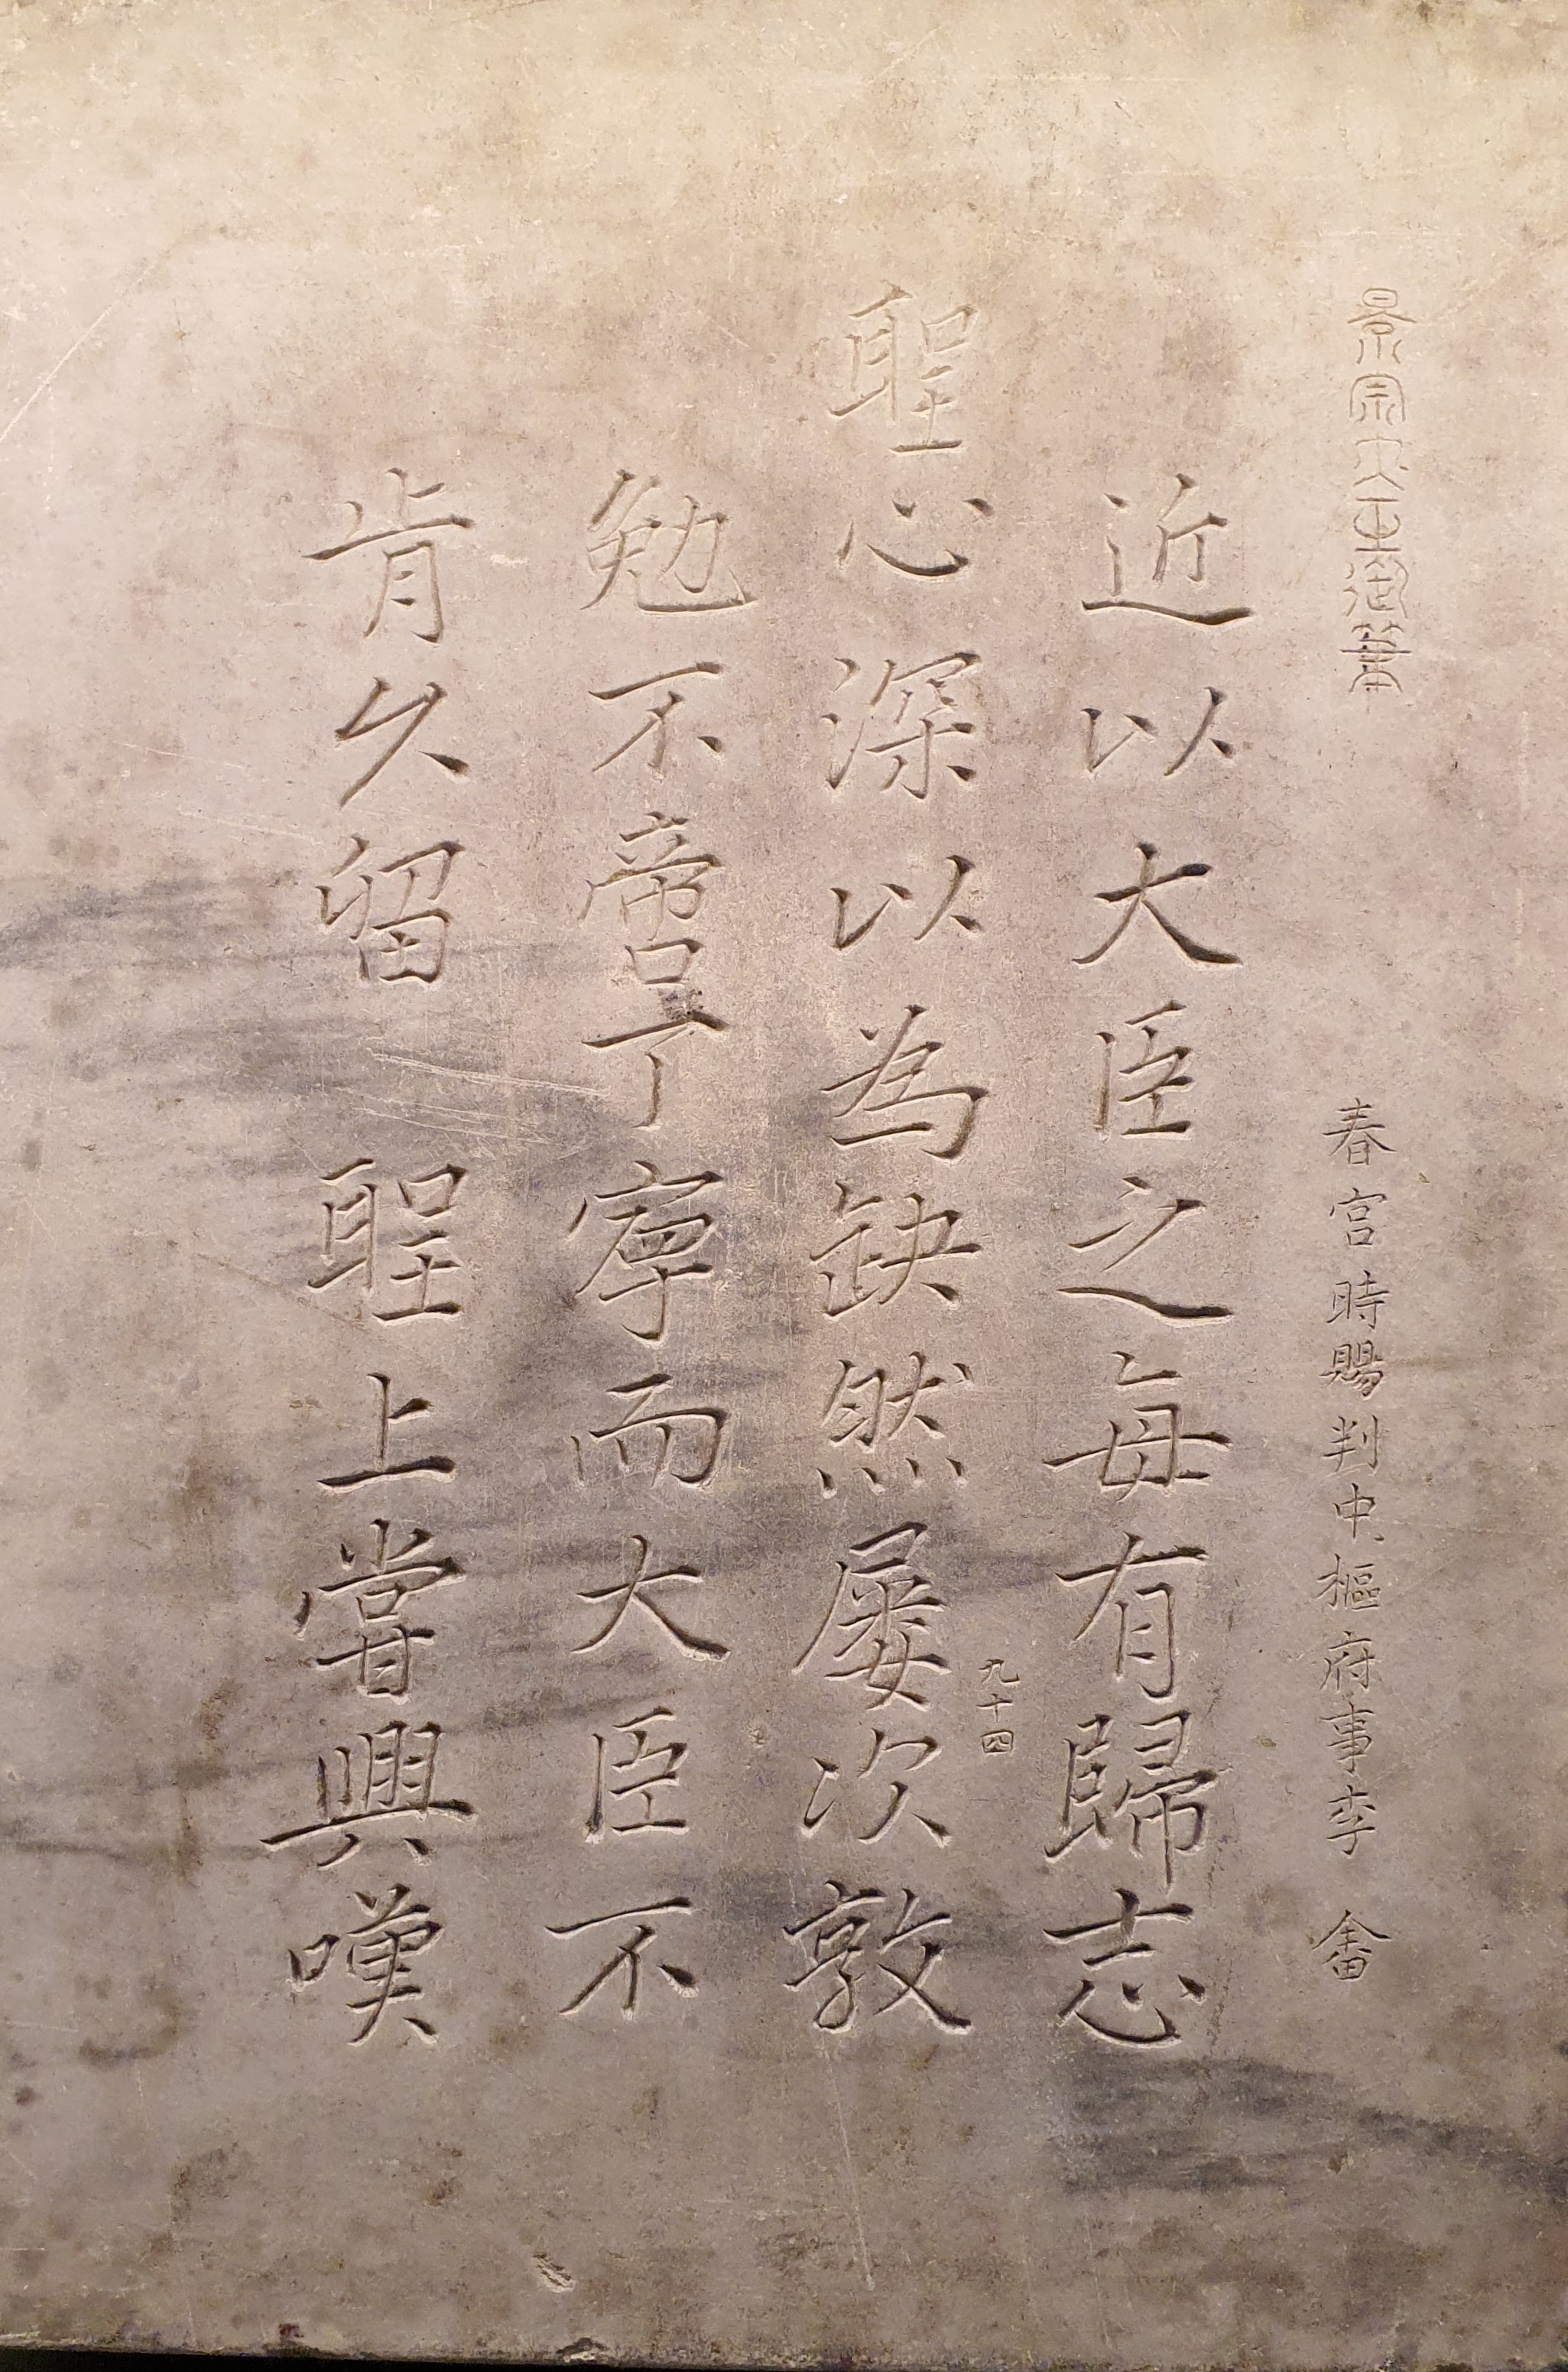 景宗大王御筆
春宮時賜判中樞府事李 畬
近以大臣之每有歸志
聖心深以為缺然屢次敦
九十四
勉不啻丁寧而大臣不
肯久留 聖上嘗興嘆